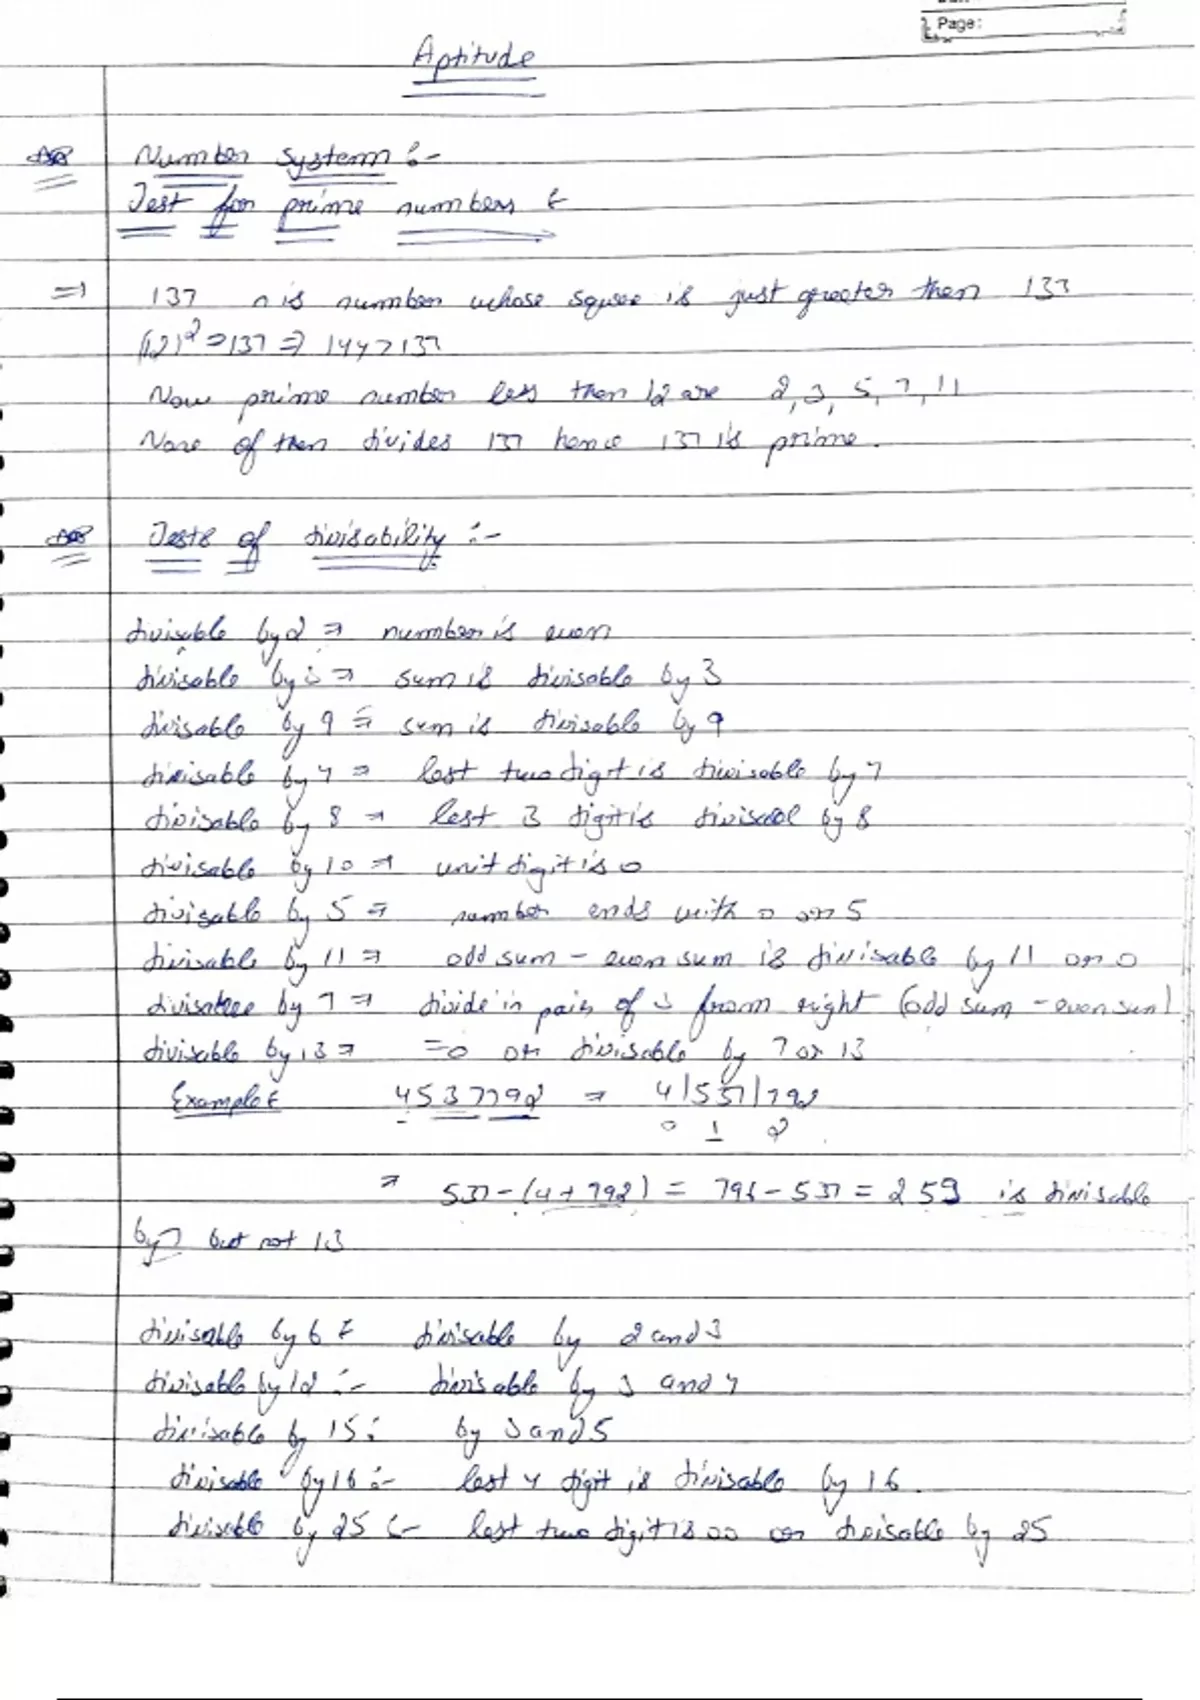 Page:
Aptitude
Number system :-
Test for prime numbers :
=> 137 n is number whose squree is just greater then 137
(12)² => 137 => 144 > 137
Now prime number less then 12 are 2, 3, 5, 7, 11
None of then divides 137 hence 137 is prime.
Tests of divisability :-
divisable by 2 => number is even
divisable by 3 => sum is divisable by 3
divisable by 9 => sum is divisable by 9
divisable by 4 => last two digit is divisable by 4
divisable by 8 => last 3 digit is divisabl by 8
divisable by 10 => unit digit is 0
divisable by 5 => number ends with 0 or 5
divisable by 11 => odd sum - even sum is divisable by 11 or 0
divisable by 7 => divide in pairs of 3 from right (odd sum - even sum)
divisable by 13 => =0 or divisable by 7 or 13
Example : 4537792 => 4|537|792
0 1 2
=> 537-(4+792) = 796-537 = 259 is divisable
by 7 but not 13
divisable by 6 : divisable by 2 and 3
divisable by 12 :- divisable by 3 and 4
divisable by 15 : by 3 and 5
divisable by 16 :- last 4 digit is divisable by 16.
divisable by 25 :- last two digit is 00 or divisable by 25